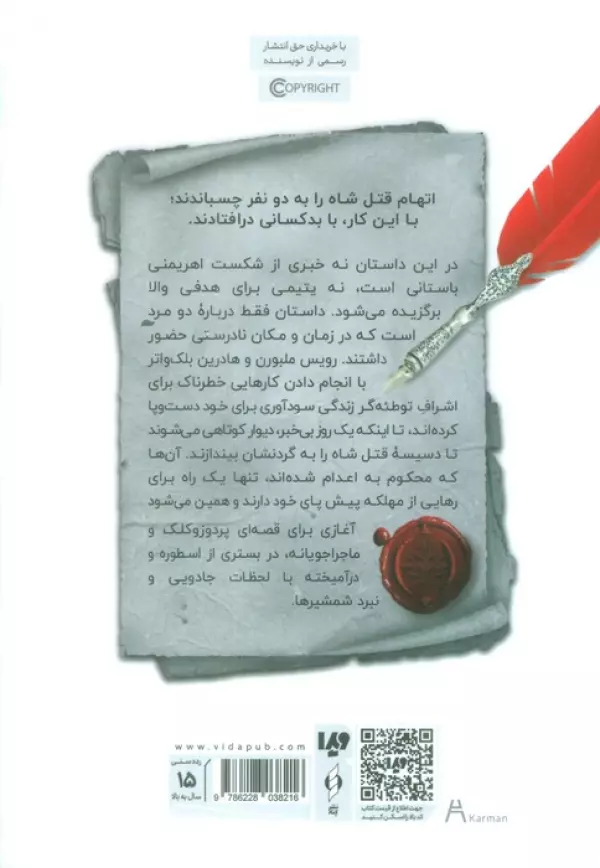 با خریداری حق انتشار
رسمی از نویسنده
COPYRIGHT
اتهام قتل شاه را به دو نفر چسباندند؛
با این کار، با بدکسانی درافتادند.
در این داستان نه خبری از شکست اهریمنی
باستانی است، نه یتیمی برای هدفی والا
برگزیده می‌شود. داستان فقط دربارهٔ دو مرد
است که در زمان و مکان نادرستی حضور
داشتند. رویس ملبورن و هادرین بلک‌واتر
با انجام دادن کارهایی خطرناک برای
اشراف توطئه‌گر زندگی سودآوری برای خود دست‌وپا
کرده‌اند، تا اینکه یک روز بی‌خبر، دیوار کوتاهی می‌شوند
تا دسیسهٔ قتل شاه را به گردنشان بیندازند. آن‌ها
که محکوم به اعدام شده‌اند، تنها یک راه برای
رهایی از مهلکه پیش پای خود دارند و همین می‌شود
آغازی برای قصه‌ای پردوزوکلک و
ماجراجویانه، در بستری از اسطوره و
درآمیخته با لحظات جادویی و
نبرد شمشیرها.
www.vidapub.com
رده‌سنی
۱۵
سال به بالا
9 786228 038216
ویدا
جهت اطلاع از قیمت کتاب
کد بالا را اسکن کنید
Karman